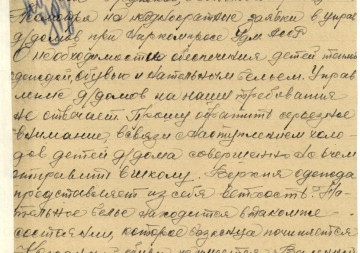 Несмотря на неоднократные заявки в управ
д/домов при Наркомпросе Удм АССР
О необходимости обеспечения детей теплой
одеждой, обувью и нательным бельем. Управ
ление д/домов на наши требования
не отвечает. Прошу обратить серьезное
внимание в связи с наступлением холо
дов детей д/дома совершенно не в чем
отправлять в школу. Верхняя одежда
представляет из себя ветхость. На-
тельное белье находится в таком же
состоянии, которое
починяется